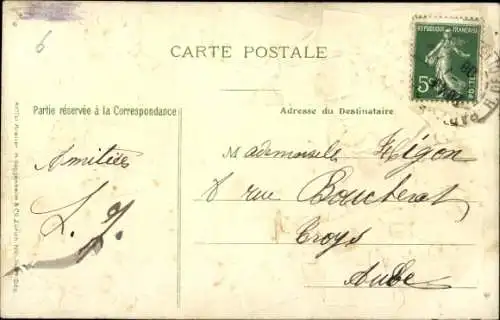 6
CARTE POSTALE
RÉPUBLIQUE FRANÇAISE
5c
POSTES
Partie réservée à la Correspondance
Adresse du Destinataire
Amitiés
L. J.
Mademoiselle Higon
8 rue Boucherat
Troys
Aube